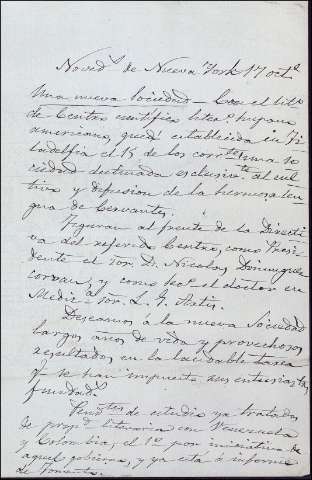 Noved.s de Nueva York 17 oct.e
Una nueva Sociedad — Con el tit.o
de Centro científico liter.o hispano
americano, quedó establecida en Fi
ladelfia el 15 de los corr.tes una so
ciedad destinada esclusiv.te al cul
tivo y difusion de la hermosa len
gua de Cervantes.
Figuran al frente de la Directi
va del referido Centro, como Presi
dente el Sor. D. Nicolas Dominguez
y como el doctor en
Medic.a Sor. L. F.
Deseamos á la nueva Sociedad
largos años de vida y provechosos
resultados en la laudable tarea
q.e se han impuesto sus entusiastas
fundad.s
de estudio ya tratados
de prop.d literaria con Venezuela
y Colombia; el 1.o por iniciativa de
aquel gobierno, y ya está á informe
de Fomento.